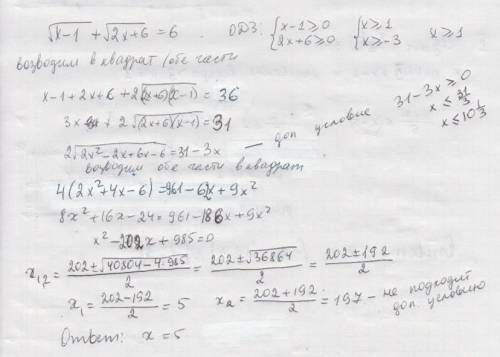 √x-1 + √2x+6 = 6 . ОДЗ: {x-1≥0 {x≥1 x≥1
2x+6≥0 x≥-3
возводим в квадрат обе части
x-1+2x+6+2√(2x+6)(x-1) = 36
3x + 2√(2x+6)(x-1) = 31
2√2x²-2x+6x-6 = 31-3x — доп условие 31-3x ≥ 0
x ≤ 31/3
x ≤ 10 1/3
возводим обе части в квадрат
4(2x²+4x-6) = 961-6x+9x²
8x²+16x-24 = 961-186x+9x²
x²-202x+985=0
x₁,₂ = 202±√40804-4·985 / 2 = 202±√36864 / 2 = 202±192 / 2
x₁ = 202-192 / 2 = 5 x₂ = 202+192 / 2 = 197 - не подходит
доп. условию
Ответ: x = 5